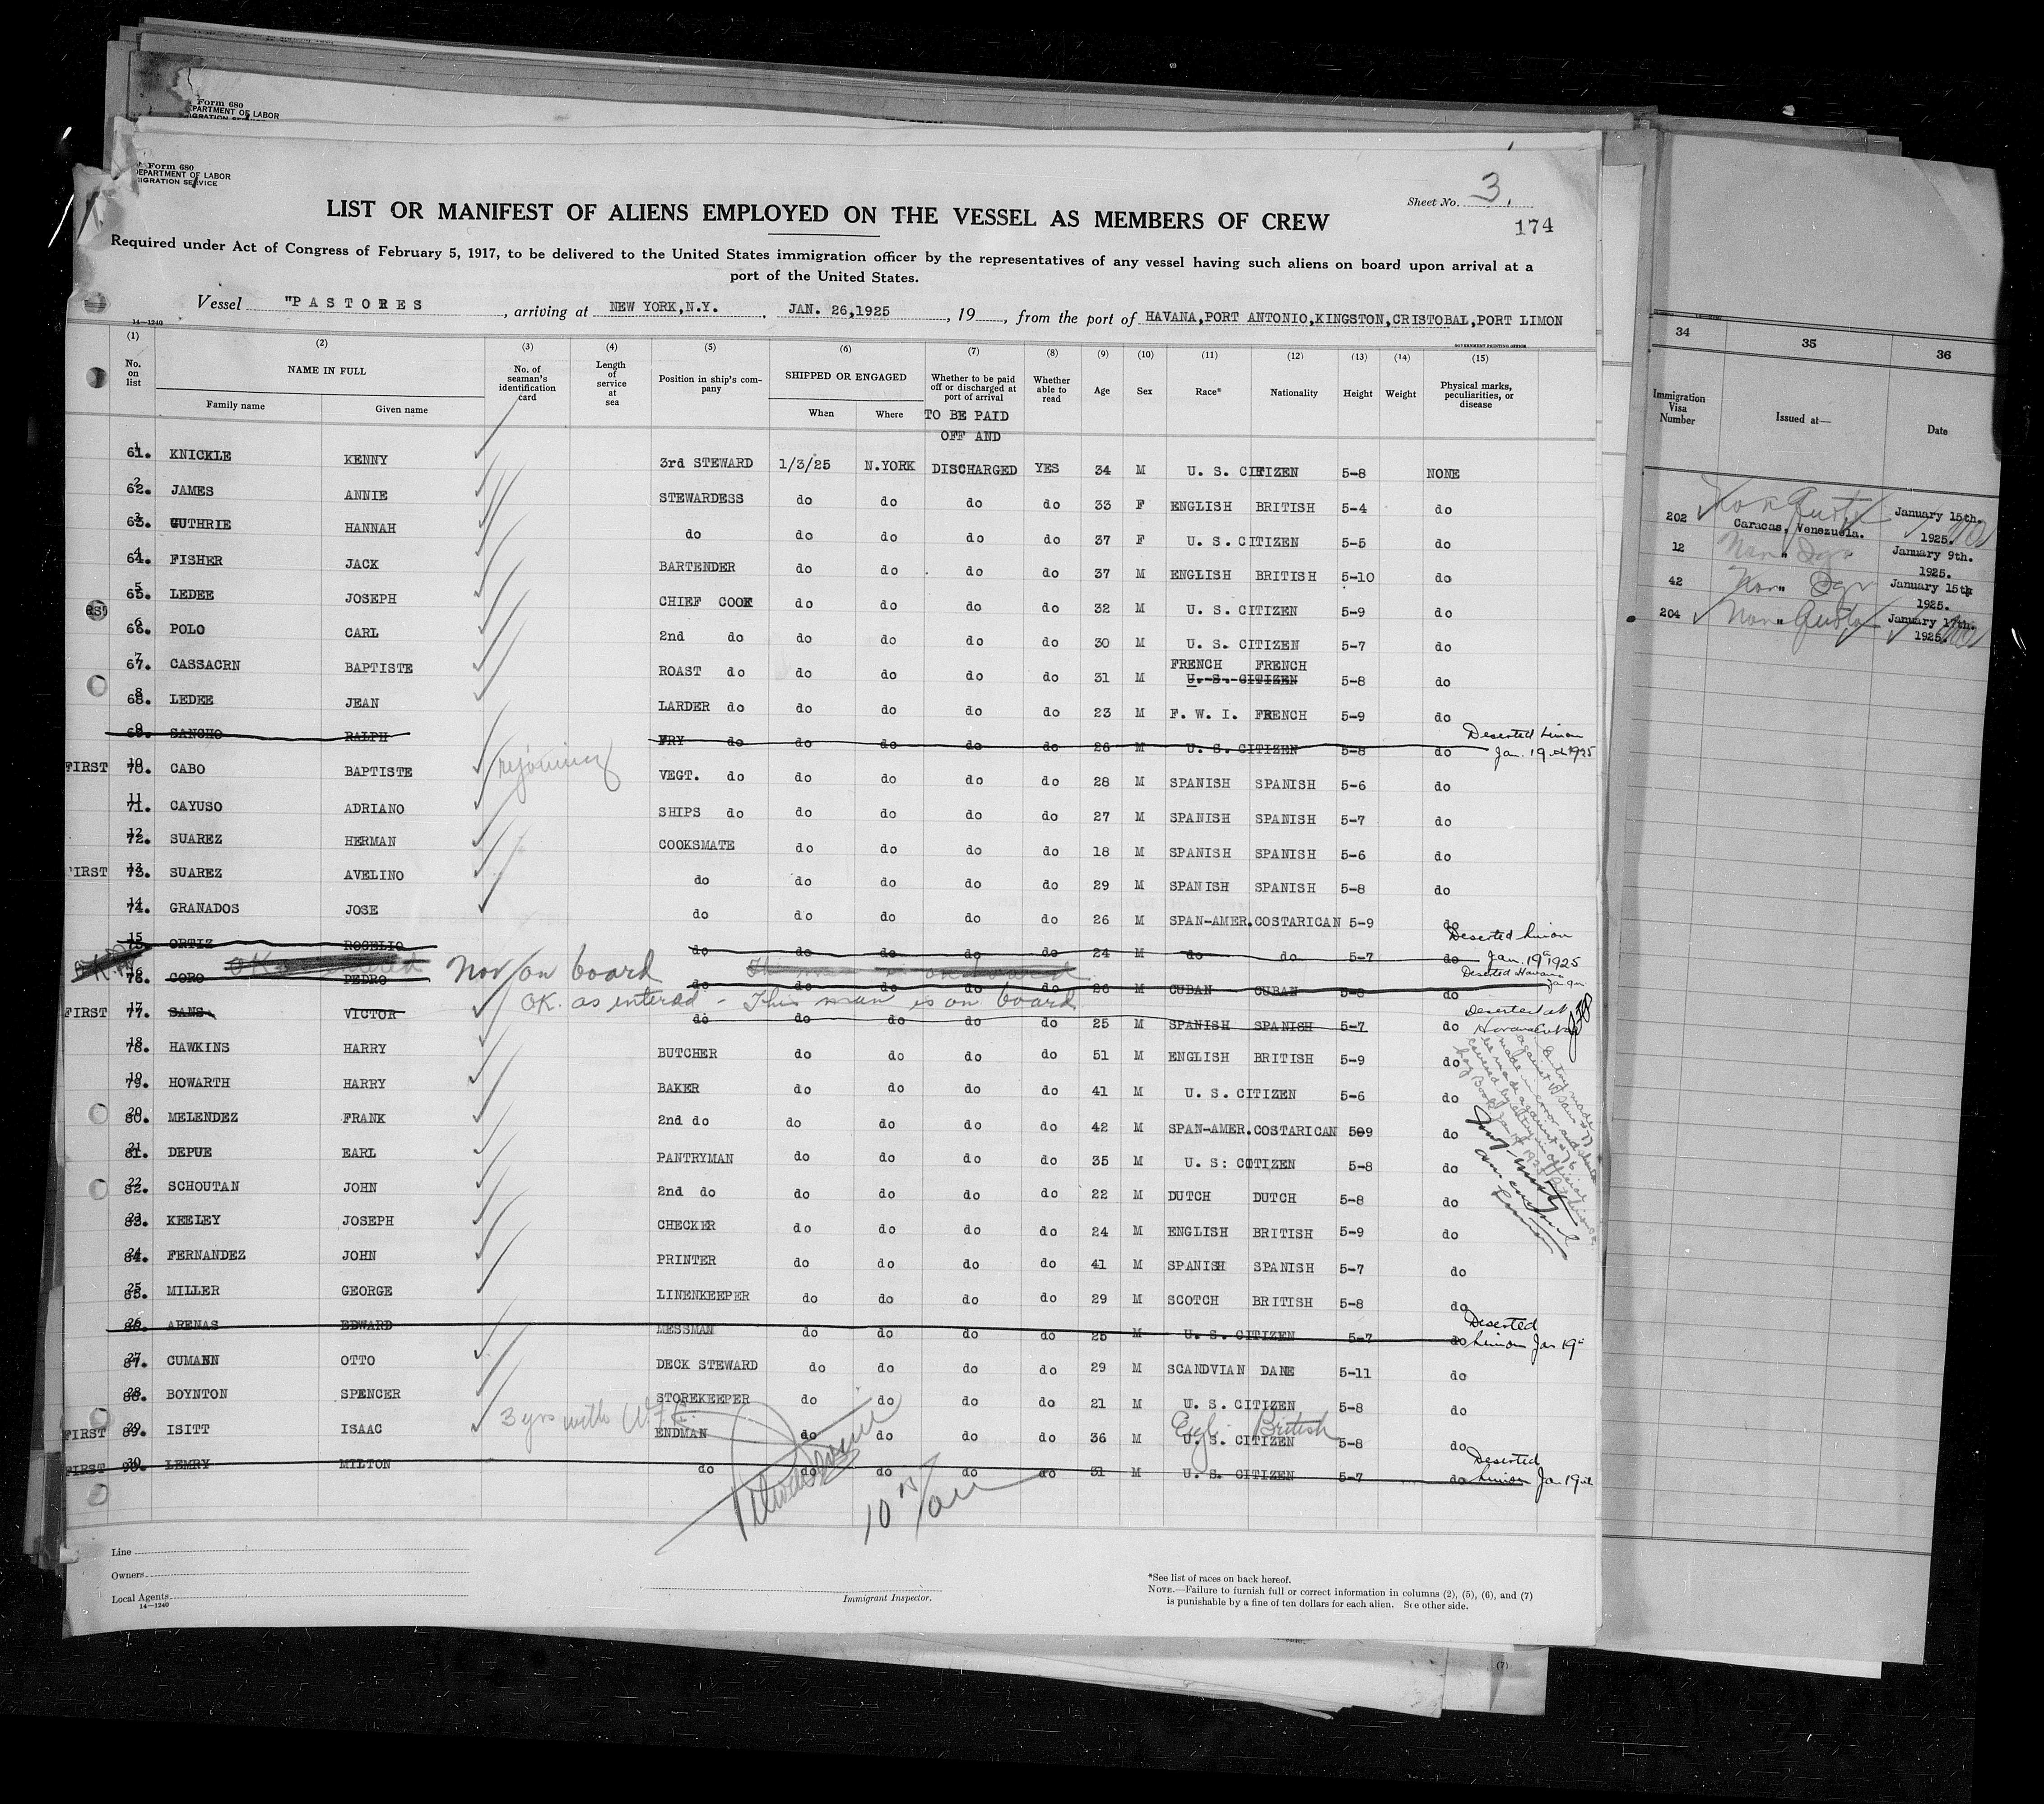 Form 680
DEPARTMENT OF LABOR
Form 680
DEPARTMENT OF LABOR
IMMIGRATION SERVICE
Sheet No. 3.
174
LIST OR MANIFEST OF ALIENS EMPLOYED ON THE VESSEL AS MEMBERS OF CREW
Required under Act of Congress of February 5, 1917, to be delivered to the United States immigration officer by the representatives of any vessel having such aliens on board upon arrival at a
port of the United States.
Vessel "PASTORES, arriving at NEW YORK,N.Y. JAN. 26,1925, 19, from the port of HAVANA,PORT ANTONIO,KINGSTON,CRISTOBAL,PORT LIMON
14—1240 GOVERNMENT PRINTING OFFICE
(1) (2) (3) (4) (5) (6) (7) (8) (9) (10) (11) (12) (13) (14) (15)
No. on list NAME IN FULL No. of seaman's identification card Length of service at sea Position in ship's company SHIPPED OR ENGAGED Whether to be paid off or discharged at port of arrival Whether able to read Age Sex Race* Nationality Height Weight Physical marks, peculiarities, or disease
Family name Given name When Where
TO BE PAID
OFF AND
1 61. KNICKLE KENNY 3rd STEWARD 1/3/25 N.YORK DISCHARGED YES 34 M U. S. CITIZEN 5-8 NONE
2 62. JAMES ANNIE STEWARDESS do do do do 33 F ENGLISH BRITISH 5-4 do
3 63. GUTHRIE HANNAH do do do do do 37 F U. S. CITIZEN 5-5 do
4 64. FISHER JACK BARTENDER do do do do 37 M ENGLISH BRITISH 5-10 do
5 65. LEDEE JOSEPH CHIEF COOK do do do do 32 M U. S. CITIZEN 5-9 do
6 66. POLO CARL 2nd do do do do do 30 M U. S. CITIZEN 5-7 do
FRENCH FRENCH
7 67. CASSACRN BAPTISTE ROAST do do do do do 31 M U. S. CITIZEN 5-8 do
8 68. LEDEE JEAN LARDER do do do do do 23 M F. W. I. FRENCH 5-9 do
9 69. SANCHO RALPH FRY do do do do do 26 M U. S. CITIZEN 5-8 do Deserted Limon Jan. 19th 1925
FIRST 10 70. CABO BAPTISTE rejoining VEGT. do do do do do 28 M SPANISH SPANISH 5-6 do
11 71. CAYUSO ADRIANO SHIPS do do do do do 27 M SPANISH SPANISH 5-7 do
12 72. SUAREZ HERMAN COOKSMATE do do do do 18 M SPANISH SPANISH 5-6 do
FIRST 13 73. SUAREZ AVELINO do do do do do 29 M SPANISH SPANISH 5-8 do
14 74. GRANADOS JOSE do do do do do 26 M SPAN-AMER. COSTARICAN 5-9 do
15 75. ORTIZ ROGELIO do do do do do 24 M do do 5-7 do Deserted Limon Jan. 19th 1925
Not on board
16 76. CORO PEDRO do do do do do 26 M CUBAN CUBAN 5-8 do Deserted Havana
OK. as entered - This man is on board
FIRST 17 77. SANS VICTOR do do do do do 25 M SPANISH SPANISH 5-7 do Deserted at Havana Cuba
18 78. HAWKINS HARRY BUTCHER do do do do 51 M ENGLISH BRITISH 5-9 do
19 79. HOWARTH HARRY BAKER do do do do 41 M U. S. CITIZEN 5-6 do
20 80. MELENDEZ FRANK 2nd do do do do do 42 M SPAN-AMER. COSTARICAN 509 do
21 81. DEPUE EARL PANTRYMAN do do do do 35 M U. S: CITIZEN 5-8 do
22 82. SCHOUTAN JOHN 2nd do do do do do 22 M DUTCH DUTCH 5-8 do
23 83. KEELEY JOSEPH CHECKER do do do do 24 M ENGLISH BRITISH 5-9 do
24 84. FERNANDEZ JOHN PRINTER do do do do 41 M SPANISH SPANISH 5-7 do
25 85. MILLER GEORGE LINENKEEPER do do do do 29 M SCOTCH BRITISH 5-8 do
26 86. ARENAS EDWARD MESSMAN do do do do 25 M U. S. CITIZEN 5-7 do Deserted Limon Jan 19th
27 87. CUMANN OTTO DECK STEWARD do do do do 29 M SCANDVIAN DANE 5-11 do
28 88. BOYNTON SPENCER STOREKEEPER do do do do 21 M U. S. CITIZEN 5-8 do
3 yrs with Engl. British
FIRST 29 89. ISITT ISAAC ENDMAN do do do do 36 M U. S. CITIZEN 5-8 do
FIRST 30 90. LEMRY MILTON do do do do do 31 M U. S. CITIZEN 5-7 do Deserted Limon Jan 19th
Line
Owners
Local Agents
14—1240
Immigrant Inspector.
*See list of races on back hereof.
NOTE.—Failure to furnish full or correct information in columns (2), (5), (6), and (7)
is punishable by a fine of ten dollars for each alien. See other side.
34 35 36
Immigration Visa Number Issued at— Date
202 Non Quota Caracas, Venezuela. January 15th. 1925.
12 Non " January 9th. 1925.
42 Non " January 15th 1925.
204 Non " Quota January 17th. 1925.
(7)